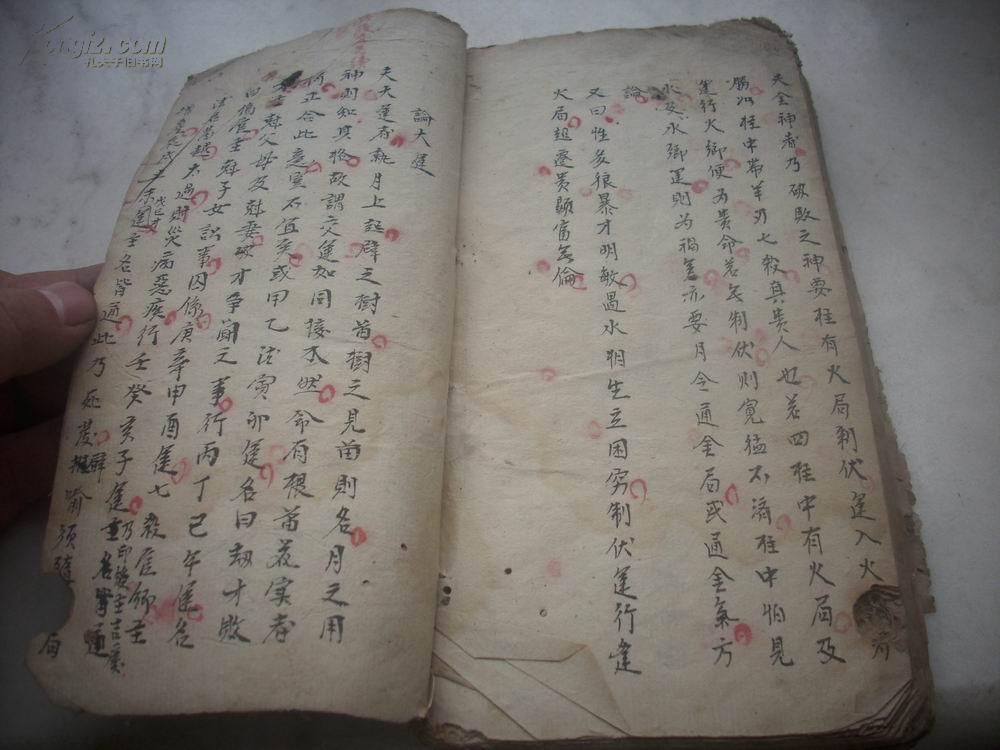 天金神者乃破敗之神要柱有火局制伏運入火
陽刃柱中帶羊刃七殺真貴人也若四柱中有火局及
運行火鄉便为貴命若無制伏則寬猛不濟柱中怕見
水及水鄉運則为禍矣亦要月令通金局或通金氣方
論
又曰性多狼暴才明敏遇水相生立困窮制伏運行運
火局超遷贵顯富無倫
論大運
夫大運者執月上起譬之樹苗樹之見苗則名月之用
神則知其格故謂交運如同接木然命有根苗花实者
正合此意豈不宜矣或甲乙法寅卯運名曰劫才敗
主尅父母及尅妻破才争鬪之事行丙丁巳午運名
曰傷官主尅子女訟事囚係庚辛申酉運七殺官鄉主
太過則災病惡疾行壬癸亥子運乃印綬主吉慶
戊己才
主名皆通此乃死法譬喻須隨
局
kongfz.com
孔夫子旧书网